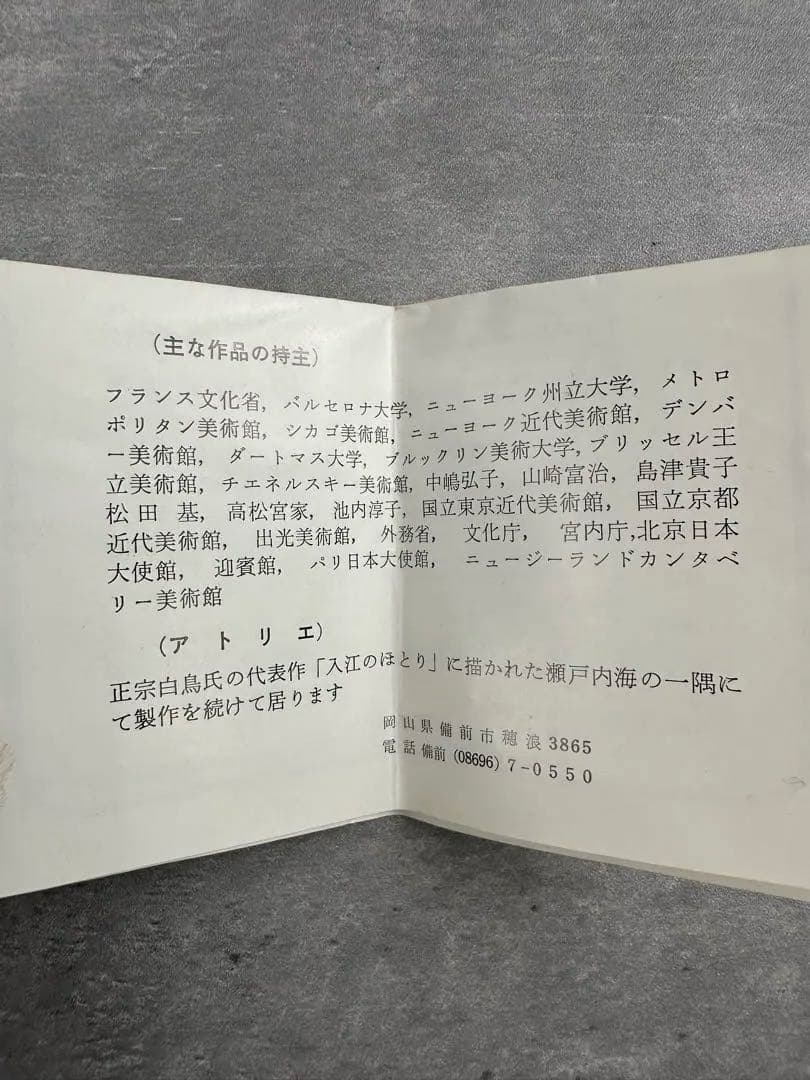 (主な作品の持主)
フランス文化省, バルセロナ大学, ニューヨーク州立大学, メトロ
ポリタン美術館, シカゴ美術館, ニューヨーク近代美術館, デンバ
ー美術館, ダートマス大学, ブルックリン美術大学, ブリッセル王
立美術館, チエネルスキー美術館, 中嶋弘子, 山崎富治, 島津貴子
松田 基, 高松宮家, 池内淳子, 国立東京近代美術館, 国立京都
近代美術館, 出光美術館, 外務省, 文化庁, 宮内庁, 北京日本
大使館, 迎賓館, パリ日本大使館, ニュージーランドカンタベ
リー美術館
(アトリエ)
正宗白鳥氏の代表作「入江のほとり」に描かれた瀬戸内海の一隅に
て製作を続けて居ります
岡山県備前市穂浪3865
電話備前(08696)7-0550